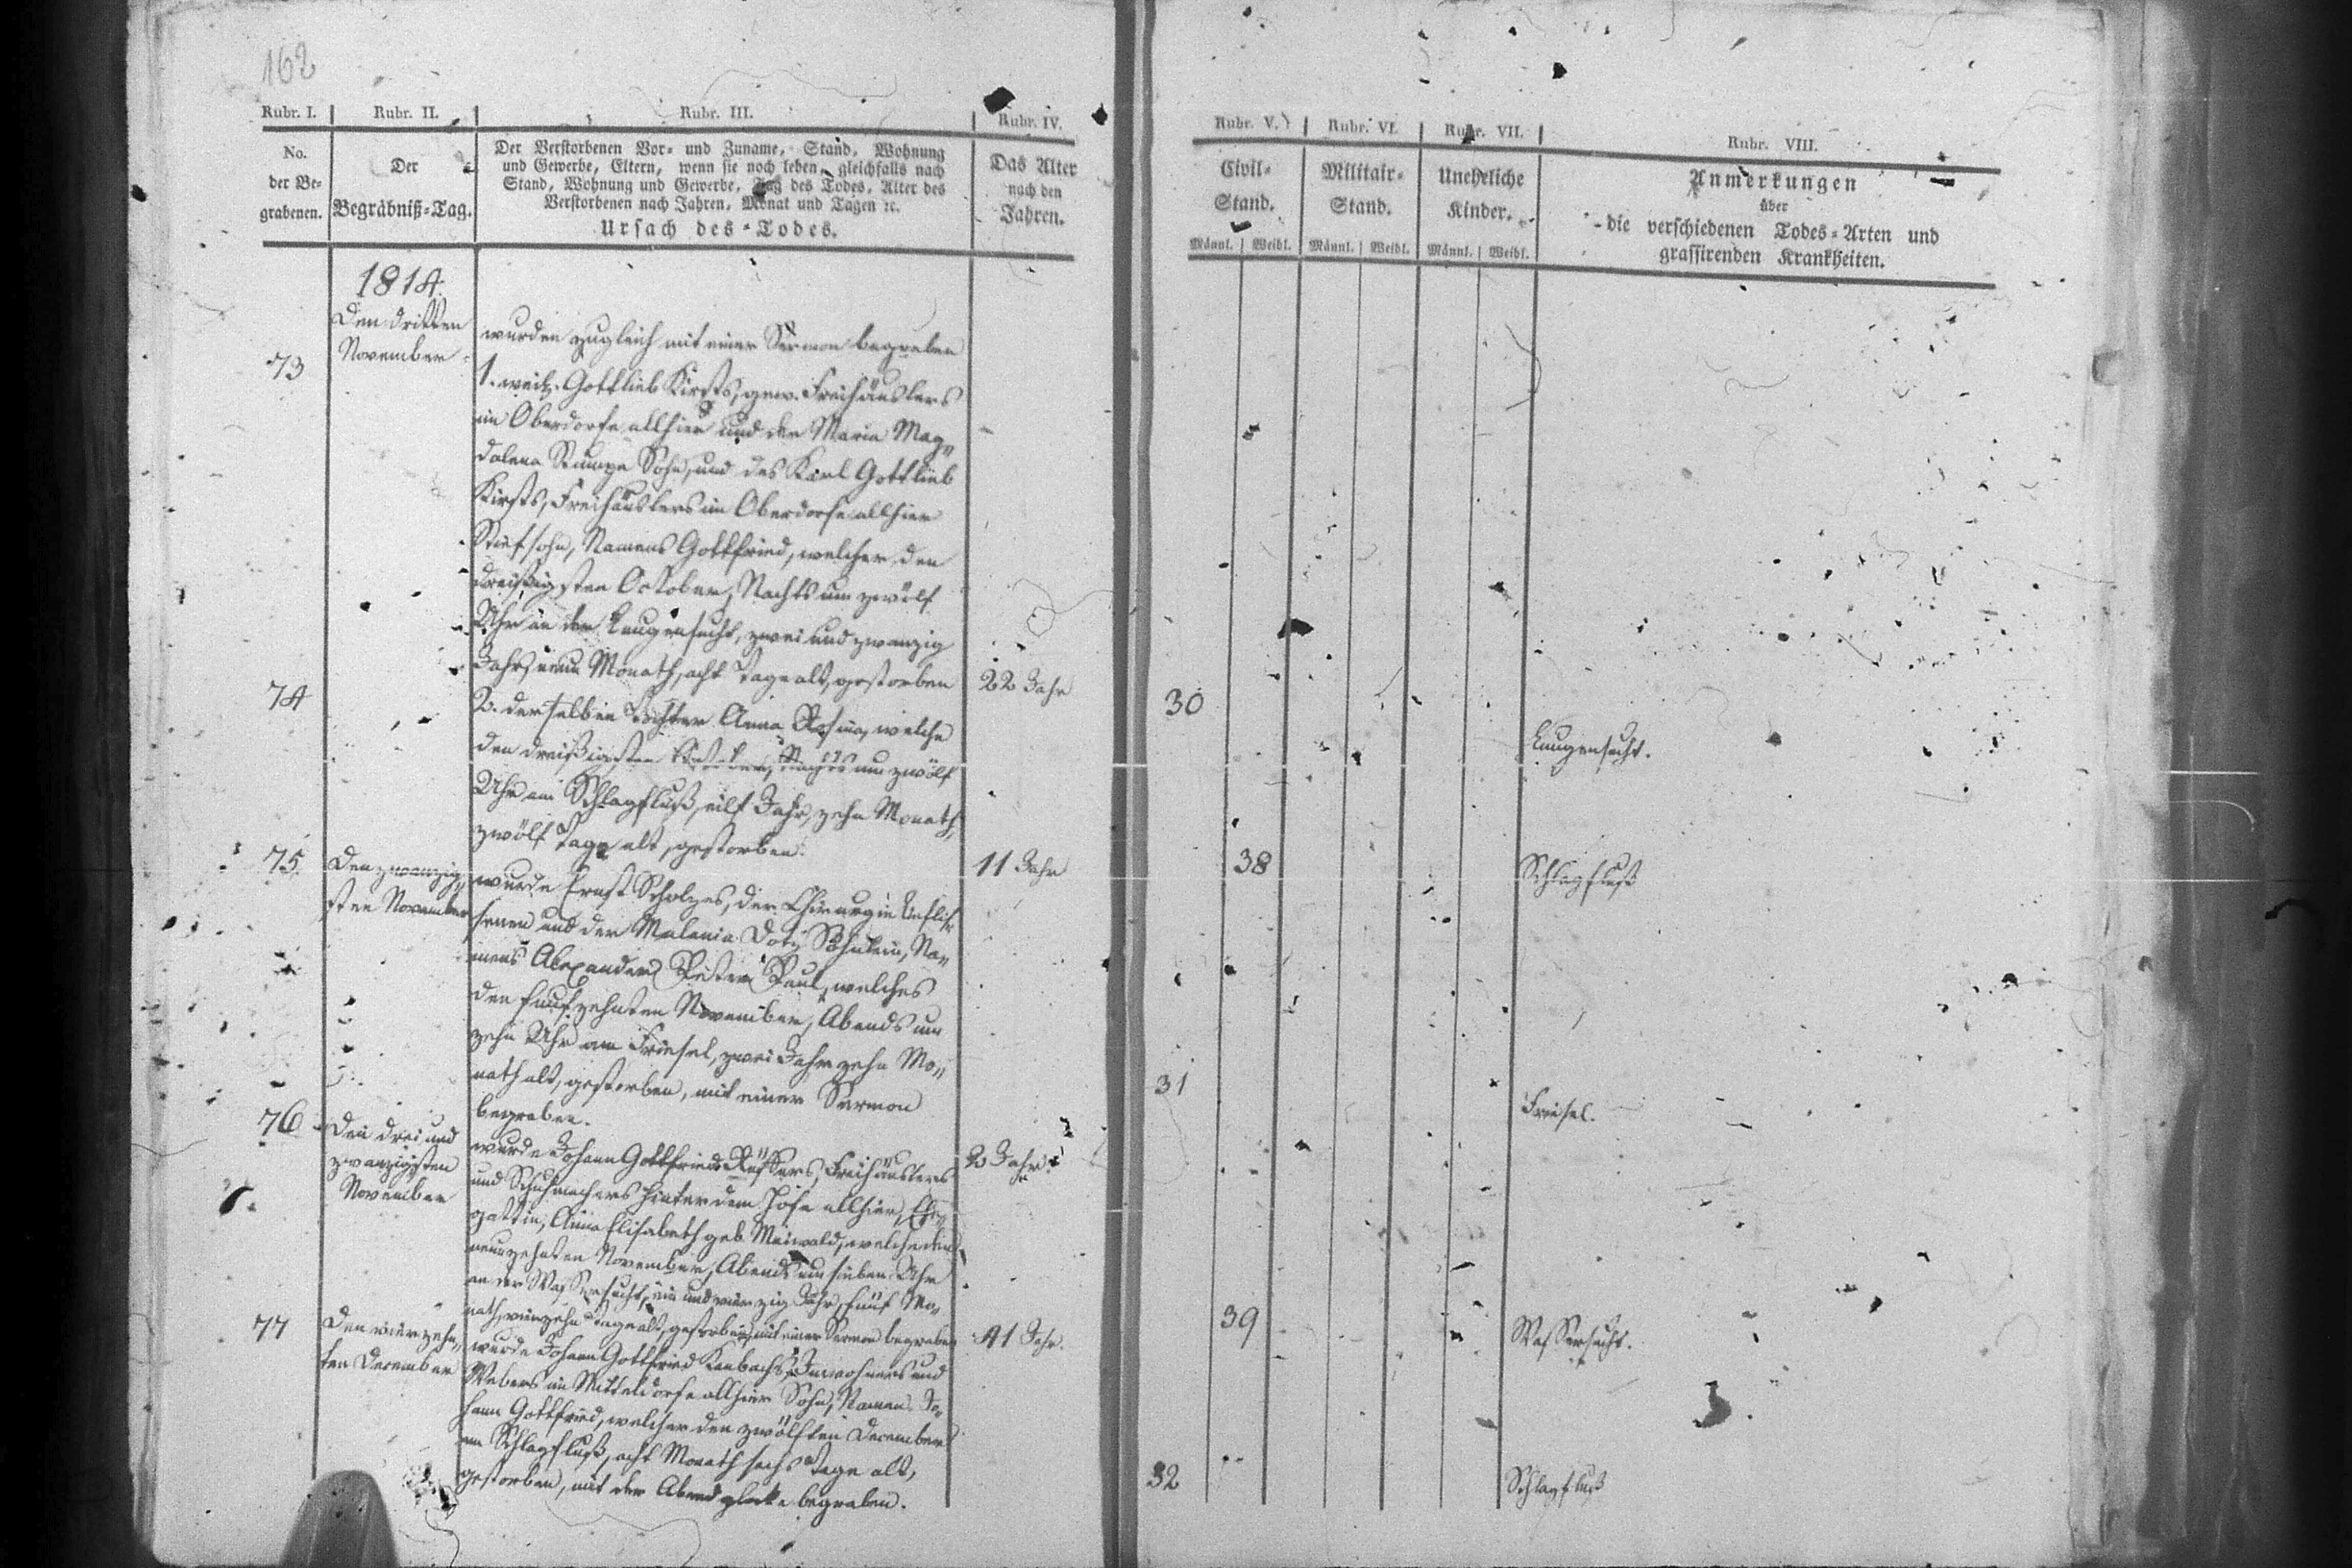 162
Rubr. I. Rubr. II. Rubr. III. Rubr. IV. Rubr. V. Rubr. VI. Rubr. VII. Rubr. VIII.
No.
der Be-
grabenen.
Der
Begräbniß-Tag.
Der Verstorbenen Vor- und Zuname, Stand, Wohnung
und Gewerbe, Eltern, wenn sie noch leben, gleichfalls nach
Stand, Wohnung und Gewerbe, Tag des Todes, Alter des
Verstorbenen nach Jahren, Monat und Tagen ꝛc.
Ursach des Todes.
Das Alter
nach den
Jahren.
Civil-
Stand.
Männl. Weibl.
Militair-
Stand.
Männl. Weibl.
Uneheliche
Kinder.
Männl. Weibl.
Anmerkungen
über
die verschiedenen Todes-Arten und
grassirenden Krankheiten.
1814.
73
Den dritten
November
wurden zugleich mit einer Sermon begraben
1. weil. Gottlieb Kirsts, gew. Freihäuslers
im Oberdorfe allhier und der Maria Mag-
dalena Stumpe Sohn, und des Karl Gottlieb
Kirsts, Freihäuslers im Oberdorfe allhier
Stiefsohn, Namens Gottfried, welcher den
dreißigsten October, Nachts um zwölf
Uhr an der Lungensucht, zwei und zwanzig
Jahr, neun Monath, acht Tage alt, gestorben
22 Jahr
30
Lungensucht.
74
2. derselben Tochter Anna Rosina, welche
den dreißigsten October, Nachts um zwölf
Uhr am Schlagfluß, eilf Jahr, zehn Monath,
zwölf Tage alt, gestorben.
11 Jahr
38
Schlagfluß
75
Den zwanzig-
sten November
wurde Ernst Scholzes, der Chirurgie Befliß-
senen und der Melania Söhnlein, Na-
mens Alexander Peter Paul, welches
den funfzehnten November, Abends um
zehn Uhr am Friesel, zwei Jahr zehn Mo-
nath alt, gestorben, mit einer Sermon
begraben.
2 Jahr
31
Friesel.
76
Den drei und
zwanzigsten
November
wurde Johann Gottfried Freihäuslers
und Schuhmachers hinter dem Hofe allhier, Ehe-
gattin, Anna Elisabeth geb. Maiwald, welche den
neunzehnten November, Abends um sieben Uhr
an der Wassersucht, ein und vierzig Jahr, fünf Mo-
nath, vierzehn Tage alt, gestorben, mit einer Sermon begraben
41 Jahr.
39
Wassersucht.
77
Den vierzehn-
ten December
wurde Johann Gottfried Kambachs, Inwohners und
Webers im Mitteldorfe allhier Sohn, Namens Jo-
hann Gottfried, welcher den zwölften December
am Schlagfluß, acht Monath sechs Tage alt,
gestorben, mit der Abendglocke begraben.
32
Schlagfluß